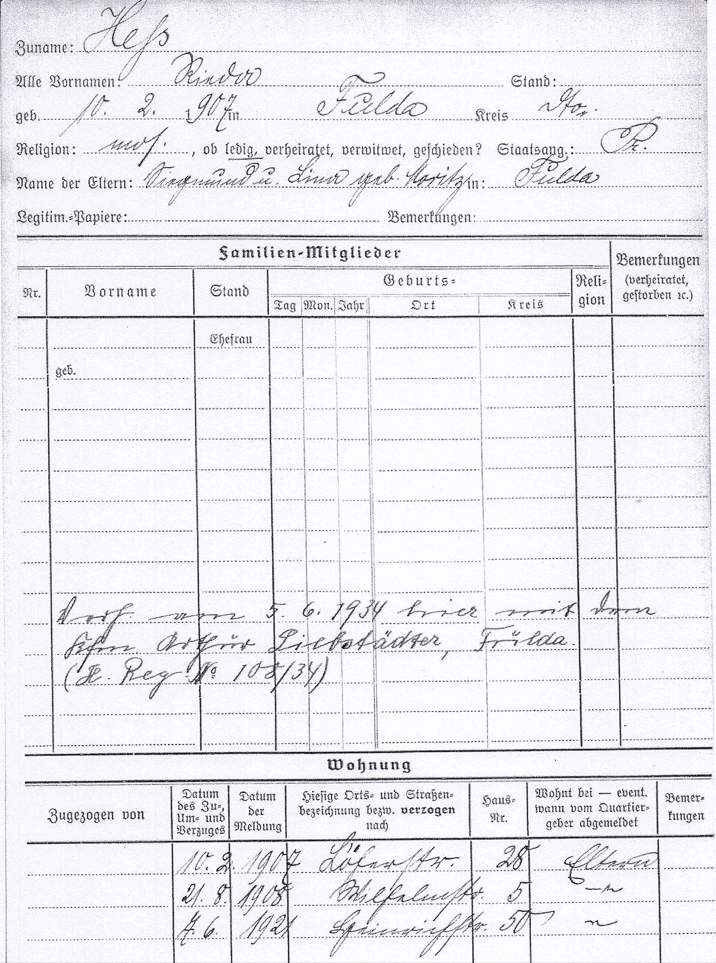 Zuname: Heß
Alle Vornamen: Stand:
geb. 10. 2. 1907 in Fulda Kreis
Religion: mos. , ob ledig, verheiratet, verwitwet, geschieden? Staatsang.: Pr.
Name der Eltern: Siegmund u. Lina geb. Moritz in: Fulda
Legitim.-Papiere: Bemerkungen:
Familien-Mitglieder
Nr. Vorname Stand Geburts- Religion Bemerkungen (verheiratet, gestorben ec.)
Tag Mon. Jahr Ort Kreis
Ehefrau
geb.
Verh. am 5. 6. 1934 hier mit dem
Kfm Arthur Liebstädter, Fulda.
(H. Reg. No 108/34)
Wohnung
Zugezogen von Datum des Zu-, Um- und Verzuges Datum der Meldung Hiesige Orts- und Straßenbezeichnung bezw. verzogen nach Haus-Nr. Wohnt bei — event. wann vom Quartiergeber abgemeldet Bemerkungen
10. 2. 1907 Löherstr. 28 Eltern
21. 8. 1908 Wilhelmstr. 5 —„
7. 6. 1921 Heinrichstr. 50 „